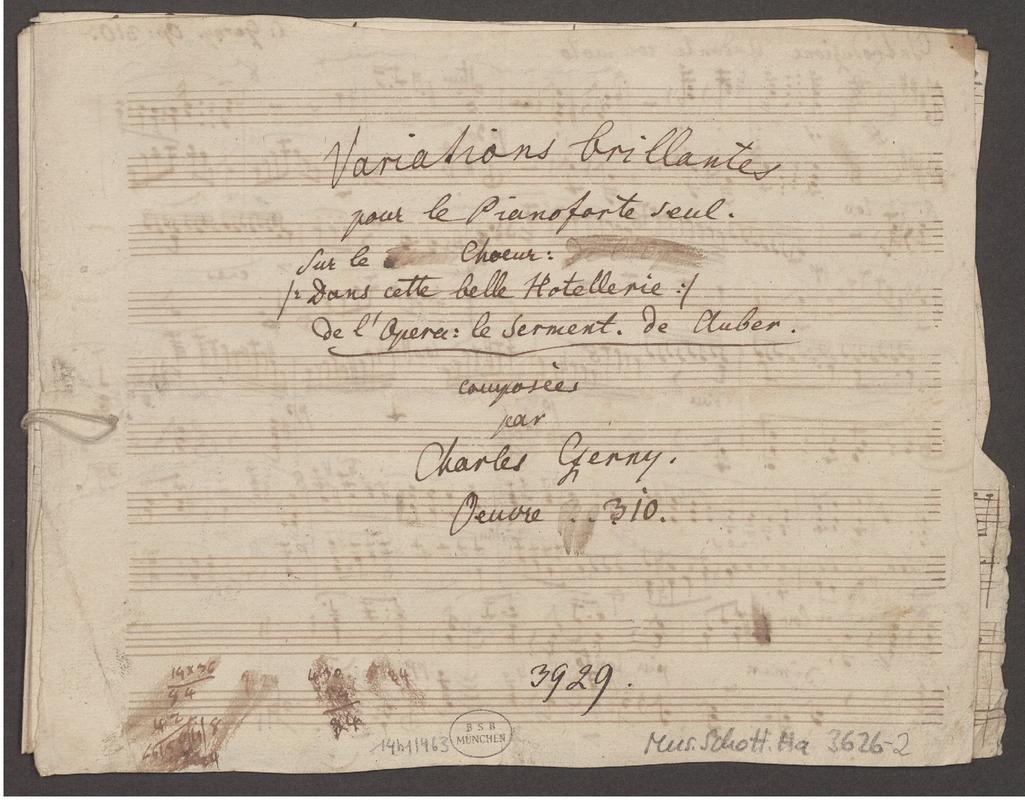 Variations brillantes
pour le Pianoforte seul.
sur le Choeur:
/: Dans cette belle Hotellerie :/
de l'Opera: le Serment. de Auber.
composées
par
Charles Czerny.
Oeuvre . . 310.
3929.
BSB
MÜNCHEN
Mus. Schott. Ha 3626-2